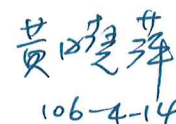 黃曉萍
106-4-14